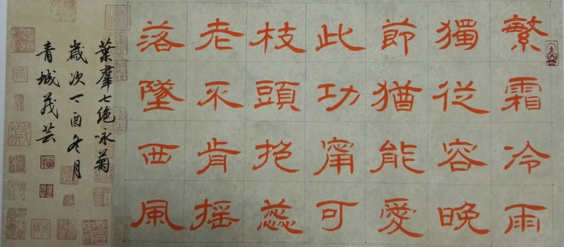 繁霜冷雨
獨從容晚
節猶能愛
此功甯可
枝頭抱蕊
老不肯搖
落墜西風
葉羣七絕咏菊
歲次丁酉冬月
青城義芸